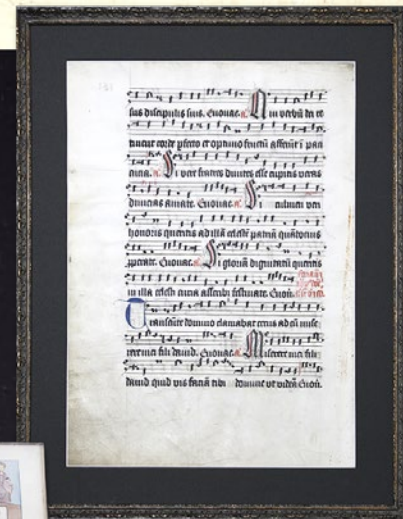 sus discipulis suis. Euouae. a. Qui verbū dei re
tinent corde pfecto et optimo fructū afferūt ī paci
encia. a. Si vere fratres divites esse cupitis veras
divicias amate. Euouae. a. Si culmen veri
honoris queritis ad illā celestē patriā quātocius
pperate. Euouae. a. Si gloriā dignitatū queritis
in illa celesti curia asscribi festinate. Euou.
Transeūte domino clamabat cecus ad eū mise
rere mei fili david. Euouae. a. Miserere mei fili
david quid vis faciā tibi domine ut videā Euou.